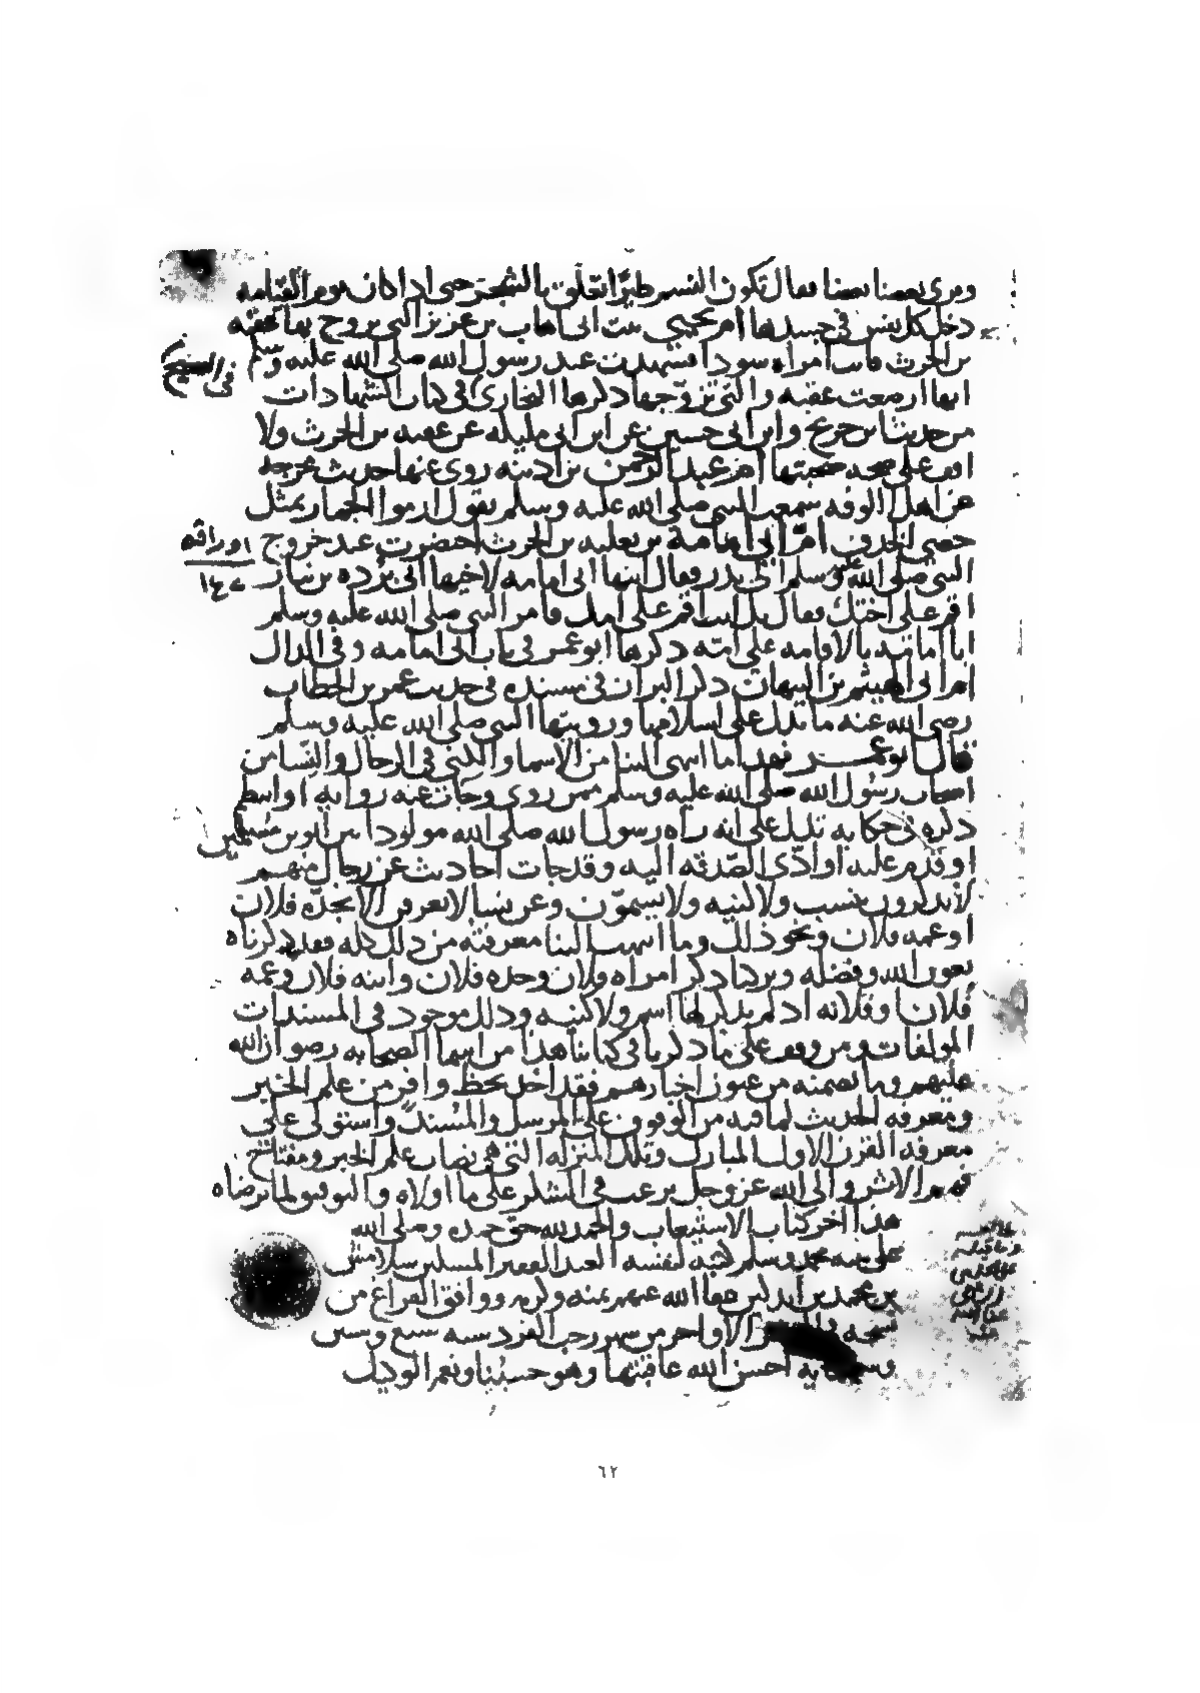 ويرى بعضنا بعضا فقال تكون النسم طيرا تعلق بالشجر حتى اذا كان يوم القيامه
دخل كل نفس في جسدها ام يحيى بنت ابي اهاب بن عزيز التي تزوج بها عقبه
بن الحرث فاتت امراه سودا فشهدت عند رسول الله صلى الله عليه وسلم
انها ارضعت عقبه والتي تزوجها ذكرها البخاري في كتاب الشهادات
في الصحيح
من حديث ابن جريج وابن ابي حسين عن ابن ابي مليكه عن عقبه بن الحرث ولا
اقف على صحه صحبتها ام عبد الرحمن بن اذينه روى عنها حديث مخرجه
عن اهل الكوفه سمعت النبي صلى الله عليه وسلم يقول ارموا الجمار بمثل
حصى الخذف ام ابي امامة بن ثعلبه بن الحرث احضرت عند خروج
اوراقه
النبي صلى الله عليه وسلم الى بدر فقال ابنها ابي امامه لاخيها ابي برده بن نيار
اقم على اختك فقال بل انت اقم على امك فامر النبي صلى الله عليه وسلم
ابا امامه بالاقامه على امه ذكرها ابو عمر في باب ابي امامه وفي الدال
ام ابي الهيثم بن التيهان ذكر البزار في مسنده في حديث عمر بن الخطاب
رضي الله عنه ما تدل على اسلامها ورويتها النبي صلى الله عليه وسلم
قال ابو عمر فهذا ما انتهى الينا من الاسما والكنى في الرجال والنسا من
اصحاب رسول الله صلى الله عليه وسلم ممن روى وجات عنه روايه او اسطر
ذكره في حكايه تدل على انه راه رسول الله صلى الله مولودا بين ابوين مسلمين
او قدم عليه او ادى الصدقه اليه وقد جات احاديث عن رجال منهم
لا يذكرون بنسب ولا كنيه ولا يسمون وعن نسا لا يعرفن الا بجده فلان
او عمه فلان ونحو ذلك وما انتهت الينا معرفته من ذلك كله فقد ذكرناه
بعون الله وفضله وتركنا ذكر امراه فلان وجده فلان وابنه فلان وعمه
فلان وفلانه اذ لم يذكر لها اسم ولا كنيه وذلك موجود في المسندات
المولفات ومن وقف على ما ذكرنا في كتابنا هذا من اسما الصحابه رضوان الله
عليهم وما تضمنه من عيون اخبارهم فقد اخذ بحظ وافر من علم الخبر
ومعرفه الحديث لما فيه من الوقوف على المرسل والمسند واستولى على
معرفه القرن الاول المبارك وتلك المنزله التي هي نصاب علم الخبر ومفتاح
فهم الاثر والى الله عز وجل نرغب في الشكر على ما اولاه والتوفيق لما يرضاه
هذا اخر كتاب الاستيعاب والحمد لله حق حمده وصلى الله
على نبيه محمد وسلم كتبه لنفسه العبد الفقير
بن محمد بن عفا الله عنهم بمنه وكرمه ووافق الفراغ من
نسخه الاواخر من شهر رجب الفرد سنه سبع وستين
احسن الله عاقبتها وهو حسبنا ونعم الوكيل
٦٢